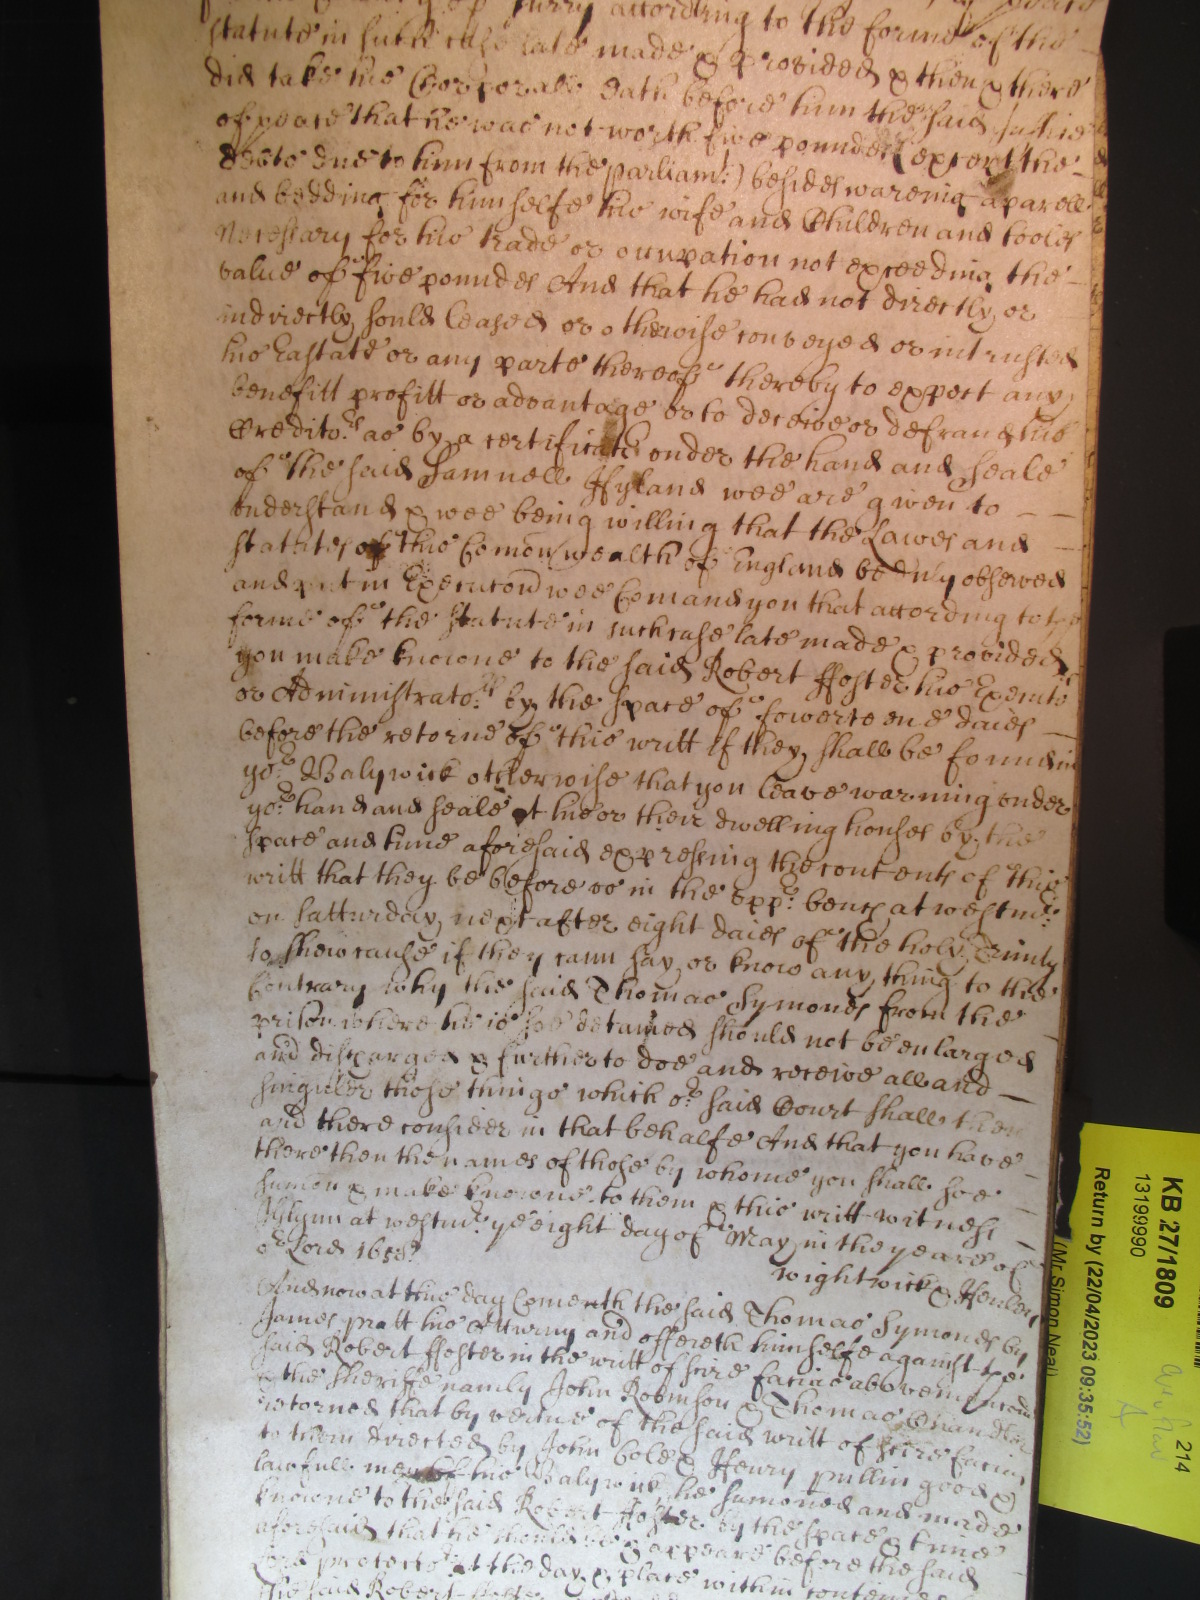 Surry according to the forme of the
statute in such case late made & provided & then & there
did take his Corporall Oath before him the said Justice
of peace that he was not worth five pounde (except the
debts due to him from the parliamt:) besides wareing aparell
and bedding for himselfe his wife and Children and tooles
Necessary for his trade or occupation not exceeding the
value of five poundes And that he had not directly or
indirectly sould leased or otherwise conveyed or intrusted
his Eastate or any parte thereof thereby to expect any
benefitt profitt or advantage or to deceive or defraud his
Creditors as by a certificate under the hand and seale
of the said Samuell Hyland wee are given to
understand & wee being willing that the Lawes and
statutes of this Comonwealth of England be duly observed
and put in Execucon wee Comand you that according to the
forme of the statute in such case late made & provided
you make knowne to the said Robert ffoster his Executrs
or Administrators by the space of fowerteene daies
before the retorne of this writt if they shall be found in
yor Balywick otherwise that you leave warning under
yor hand and seale at his or their dwelling houses by the
space and time aforesaid expressing the contents of this
writt that they be before us in the upp: bench at westmr:
on Satturday next after eight daies of the holy Trinity
to shew cause if they cann say or know any thing to the
Contrary why the said Thomas Symonds from the
prison where he is soe detained should not be enlarged
and discharged & further to doe and receive all and
singuler those things which or said Court shall then
and there consider in that behalfe And that you have
there then the names of those by whome you shall soe
sumon & make knowne to them & this writt witness
Glynn at westmr ye eight day of May in the yeare of
or Lord 1658
Wightwick & Henley
And now at this day Cometh the said Thomas Symonds by
James pratt his Atturny and offereth himselfe against the
said Robert ffoster in the writt of scire facias above menconed
& the Sheriffe namly John Robinson & Thomas Chandler
retorned that by vertue of the said writt of scire facias
to them directed by John Cole & Henry pullin good &
lawfull men of his Balywick he sumoned and made
knowne to the said Robert ffoster by the space & time
aforesaid that he should be & appeare before the said
Lord protector at the day & place within conteined
the said Robert ffoster
KB 27/1809
13199990
Return by (22/04/2023 09:35:52)
(Mr Simon Neal)
214
A